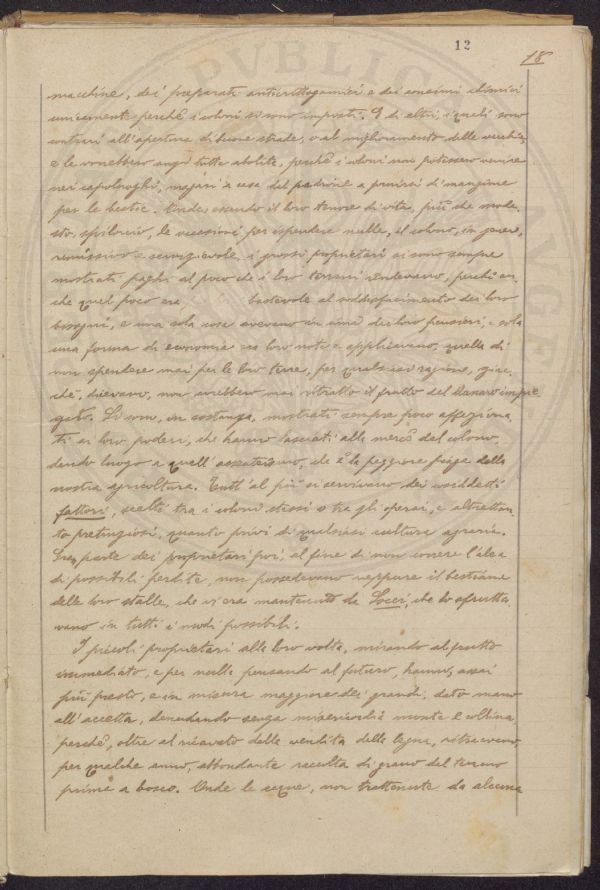 12
18
macchine, dei preparati anticrittogamici e dei concimi chimici
unicamente perchè i coloni si sono imposti. E di altri, i quali sono
contrari all'apertura di buone strade, o al miglioramento delle vecchie,
e le vorrebbero anzi tutte abolite, perchè i coloni non potessero venire
nei capoluoghi, magari a casa del padrone a fornirsi di mangime
per le bestie. Onde, essendo il loro tenore di vita, più che mode-
sto, spilorcio, le occasioni per ispendere nulle, il colono, in genere,
remissivo e servizievole, i grossi proprietari si sono sempre
mostrati paghi al poco che i loro terreni rendevano, perchè an-
che quel poco era bastevole al soddisfacimento dei loro
bisogni, e una sola cosa avevano in cima dei loro pensieri, e sola
una forma di economia era loro nota e applicavano, quella di
non spendere mai per le loro terre, per qualsiasi ragione, giac-
chè, dicevano, non avrebbero mai ritratto il frutto del danaro impie-
gato. Si sono, in sostanza, mostrati sempre poco affeziona-
ti ai loro poderi, che hanno lasciati alla mercè del colono,
dando luogo a quell' assenteismo, che è la peggiore piaga della
nostra agricoltura. Tutt' al più si servivano dei cosiddetti
fattori, scelti tra i coloni stessi o tra gli operai, e altrettan-
to pretenziosi, quanto privi di qualsiasi cultura agraria.
Gran parte dei proprietari poi, al fine di non correre l'alea
di possibili perdite, non possedevano neppure il bestiame
delle loro stalle, che vi era mantenuto da Socci, che lo sfrutta-
vano in tutti i modi possibili.
I piccoli proprietari alla loro volta, mirando al frutto
immediato, e per nulla pensando al futuro, hanno, assai
più presto, e in misura maggiore dei grandi, dato mano
all'accetta, denudando senza misericordia monte e collina
perchè, oltre al ricavato della vendita delle legna, ritraevano,
per qualche anno, abbondante raccolta di grano dal terreno
prima a bosco. Onde le acque, non trattenute da alcuna